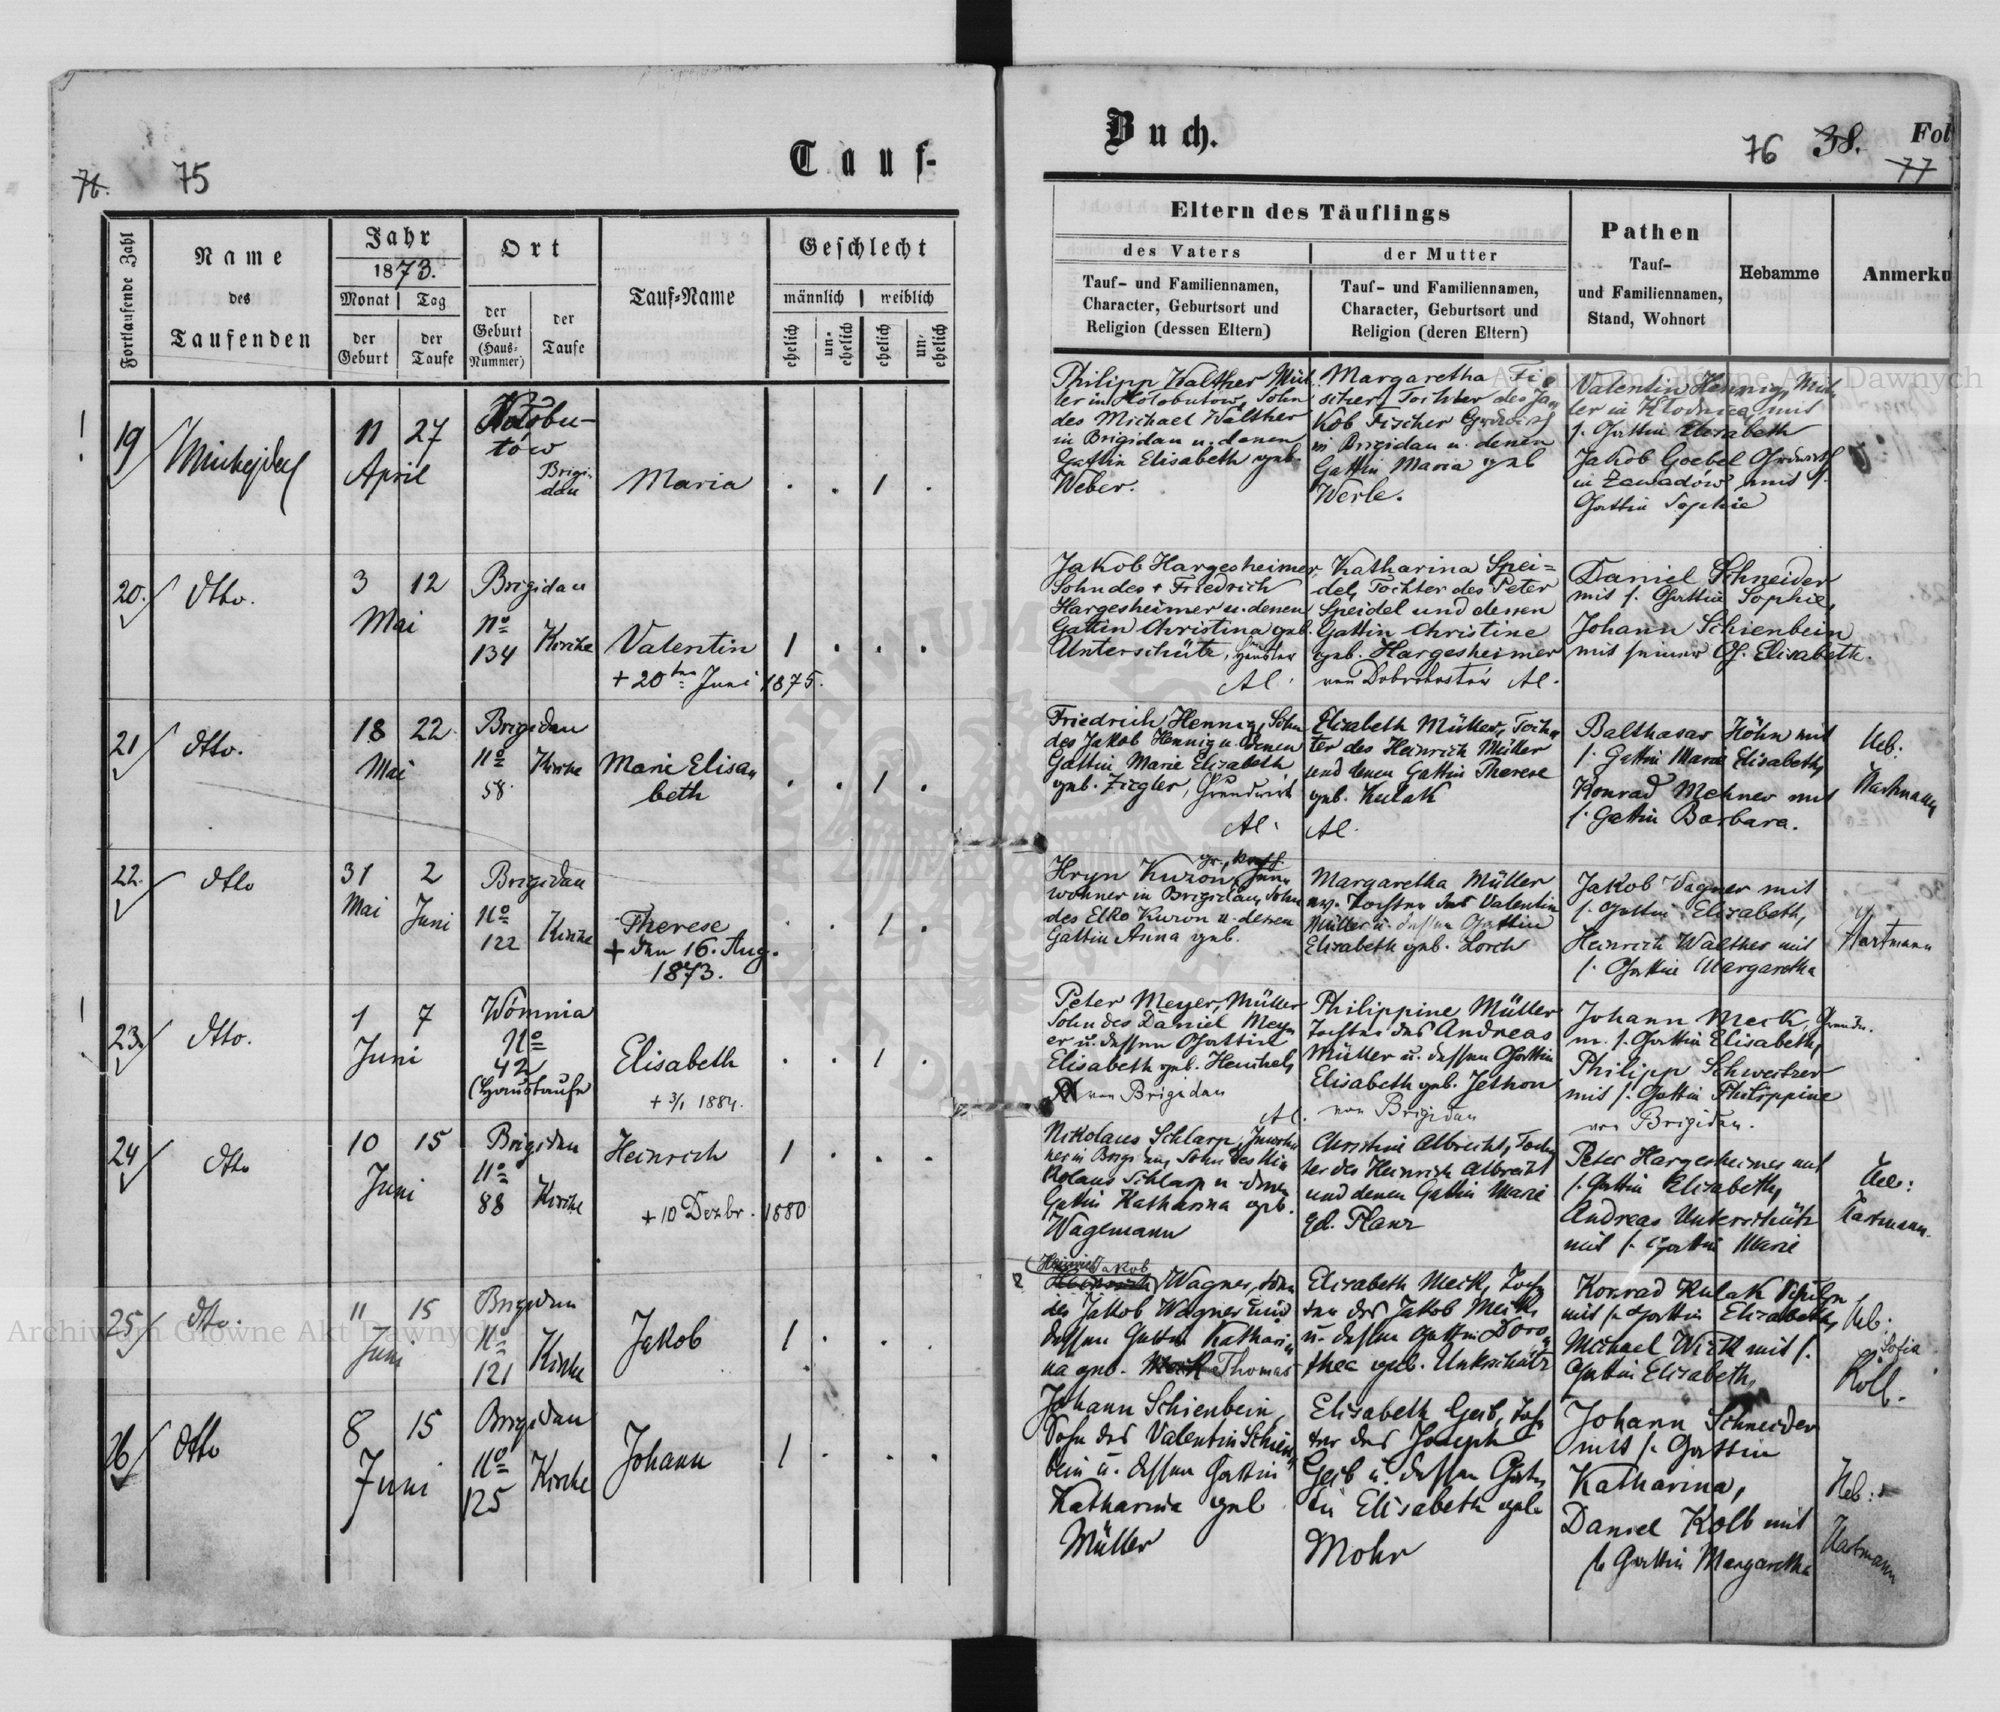 Tauf-
Buch.
76.
75
76
38.
Fol
77
Fortlaufende Zahl
Name
des
Taufenden
Jahr
1873.
Monat
Tag
der
Geburt
der
Taufe
Ort
der
Geburt
(Haus-
Nummer)
der
Taufe
Tauf-Name
Geschlecht
männlich
weiblich
ehelich
un-
ehelich
ehelich
un-
ehelich
Eltern des Täuflings
des Vaters
der Mutter
Tauf- und Familiennamen,
Character, Geburtsort und
Religion (dessen Eltern)
Tauf- und Familiennamen,
Character, Geburtsort und
Religion (deren Eltern)
Pathen
Tauf-
und Familiennamen,
Stand, Wohnort
Hebamme
Anmerku
!
19
11 27
April
Hołobu-
tów
Brigi-
dau
Maria
. . 1 .
Philipp Walther Mül-
ler in Hołobutow, Sohn
des Michael Walther
in Brigidau u. denen
Gattin Elisabeth geb.
Weber.
Margaretha Fi-
scher, Tochter des Ja-
kob Fischer
in Brigidau u. denen
Gattin Maria geb
Werle.
Valentin Hennig, Mül-
ler in Kłodnica mit
s. Gattin Elisabeth
Jakob Goebel Grdwirth
in Zawadów mit s.
Gattin Sophie
20.
dtto.
3 12
Mai
Brigidau
No
134
Kirche
Valentin
+ 20ten Juni 1875.
1 . . .
Jakob Hargesheimer,
Sohn des + Friedrich
Hargesheimer u. denen
Gattin Christina geb.
Unterschütz,
Al.
Katharina Spei-
del, Tochter des Peter
Speidel und denen
Gattin Christine
geb. Hargesheimer
von Dobrohostów Al.
Daniel Schneider
mit s. Gattin Sophie,
Johann Schienbein
mit seiner G. Elisabeth.
21
dtto.
18 22
Mai
Brigidau
No
58.
Kirche
Marie Elisa-
beth
. . 1 .
Friedrich Hennig, Sohn
des Jakob Hennig u. denen
Gattin Marie Elisabeth
geb. Ziegler, Grundwirt
Al.
Elisabeth Müller, Toch-
ter des Heinrich Müller
und denen Gattin Therese
geb. Kulak
Al.
Balthasar Höhn mit
s. Gattin Marie Elisabeth,
Konrad Mehner mit
s. Gattin Barbara.
Heb.
Hartmann
22.
dtto
31 2
Mai Juni
Brigidau
No
122
Kirche
Therese
+ den 16. Aug.
1873.
. . 1 .
Hryn Kuroń, Inn-
wohner in Brigidau, Sohn
des Elko Kuron u. denen
Gattin Anna geb.
Margaretha Müller
ev. Tochter des Valentin
Müller u. dessen Gattin
Elisabeth geb. Lorch
Jakob Wagner mit
s. Gattin Elisabeth,
Heinrich Walther mit
s. Gattin Margaretha
Hartmann
!
23.
dtto.
1 7
Juni
Wómnia
No
42
(Haustaufe
Elisabeth
+ 3/1 1884.
. . 1 .
Peter Meyer, Müller
Sohn des Daniel Mey-
er u. dessen Gattin
Elisabeth geb. Heuchel,
von Brigidau
Al.
Philippine Müller
Tochter des Andreas
Müller u. dessen Gattin
Elisabeth geb. Jethon
von Brigidau
Johann Meck, Grundw.
m. s. Gattin Elisabeth,
Philipp Schweitzer
mit s. Gattin Philippine
von Brigidau.
24
dtto
10 15
Juni
Brigidau
No
88
Kirche
Heinrich
+ 10 Dezbr. 1880
1 . . .
Nikolaus Schlarp, Inwoh-
ner in Brigidau, Sohn des Ni-
kolaus Schlarp u. denen
Gattin Katharina geb.
Wagemann
Christine Albrecht, Toch-
ter des Heinrich Albrecht
und denen Gattin Marie
geb. Planz
Peter Hargesheimer mit
s. Gattin Elisabeth,
Andreas Unterschütz
mit s. Gattin Marie
Heb:
Hartmann.
25
dtto.
11 15
Juni
Brigidau
No
121
Kirche
Jakob
1 . . .
Jakob
Wagner, Sohn
des Jakob Wagner und
dessen Gattin Kathari-
na geb. Meck Thomas
Elisabeth Meck, Toch-
ter des Jakob Meck,
u. dessen Gattin Doro-
thea geb. Unterschütz
Konrad Kulak
mit s. Gattin Elisabeth,
Michael Wirth mit s.
Gattin Elisabeth,
Heb.
Sofia
Koll.
26
dtto
8 15
Juni
Brigidau
No
125
Kirche
Johann
1 . . .
Johann Schienbein,
Sohn des Valentin Schien-
bein u. dessen Gattin
Katharina geb
Müller
Elisabeth Geib, Toch-
ter des Joseph
Geib u. dessen Gat-
tin Elisabeth geb.
Mohr
Johann Schneider
mit s. Gattin
Katharina,
Daniel Kolb mit
s. Gattin Margaretha
Heb:
Hartmann
Archiwum Główne Akt Dawnych
Archiwum Główne Akt Dawnych